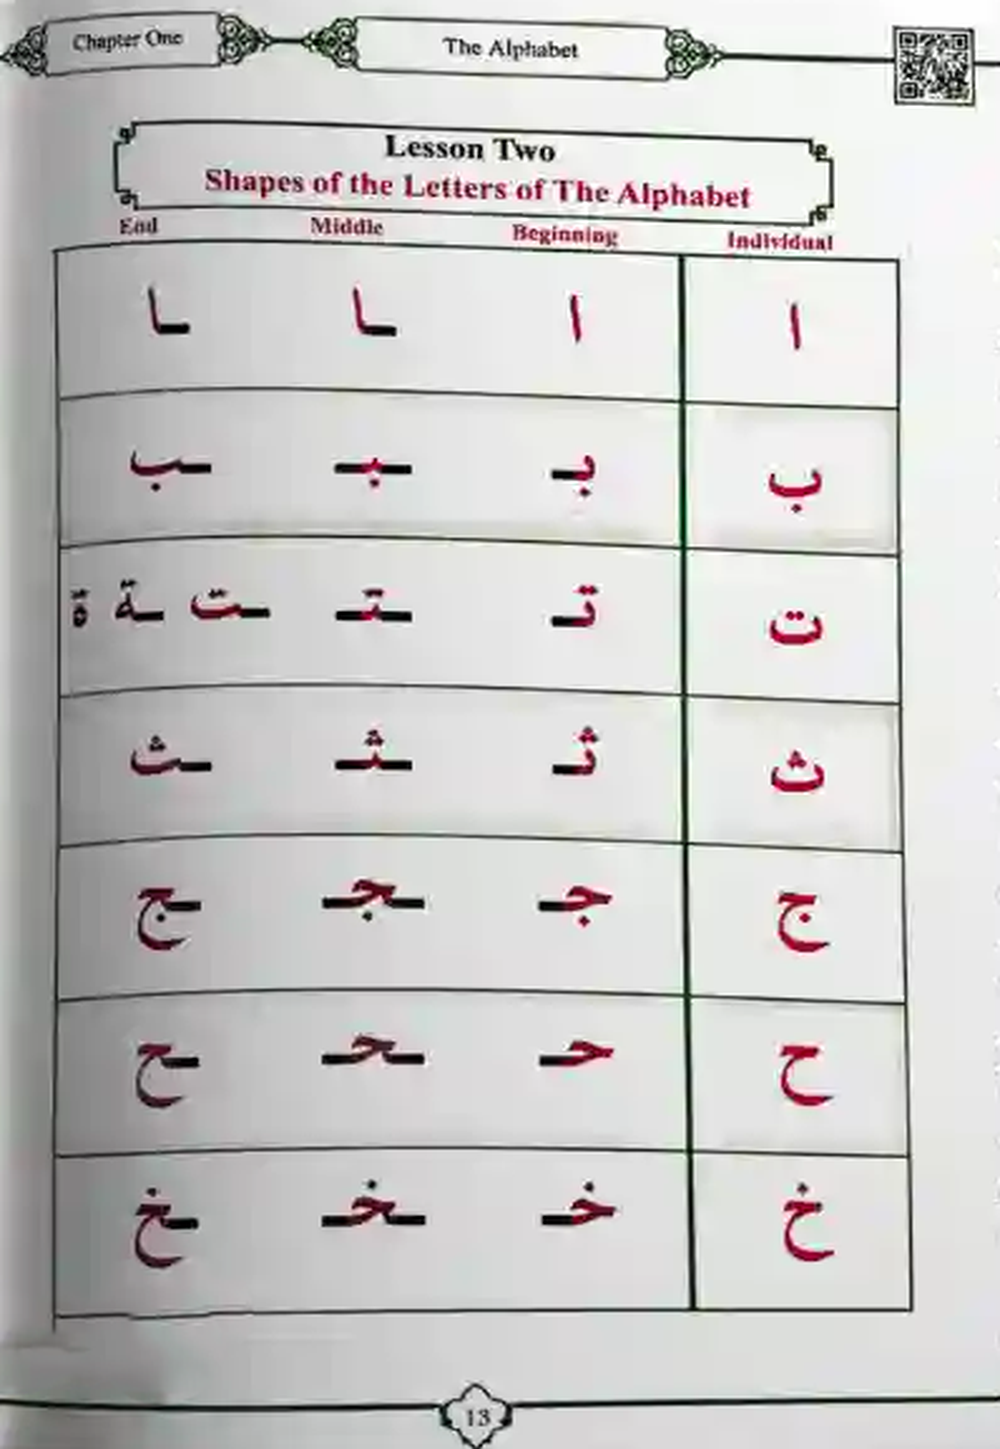 Chapter One
The Alphabet
Lesson Two
Shapes of the Letters of The Alphabet
End Middle Beginning Individual
ا ا ـا ـا
ب بـ ـبـ ـب
ت تـ ـتـ ـت ـة ة
ث ثـ ـثـ ـث
ج جـ ـجـ ـج
ح حـ ـحـ ـح
خ خـ ـخـ ـخ
13